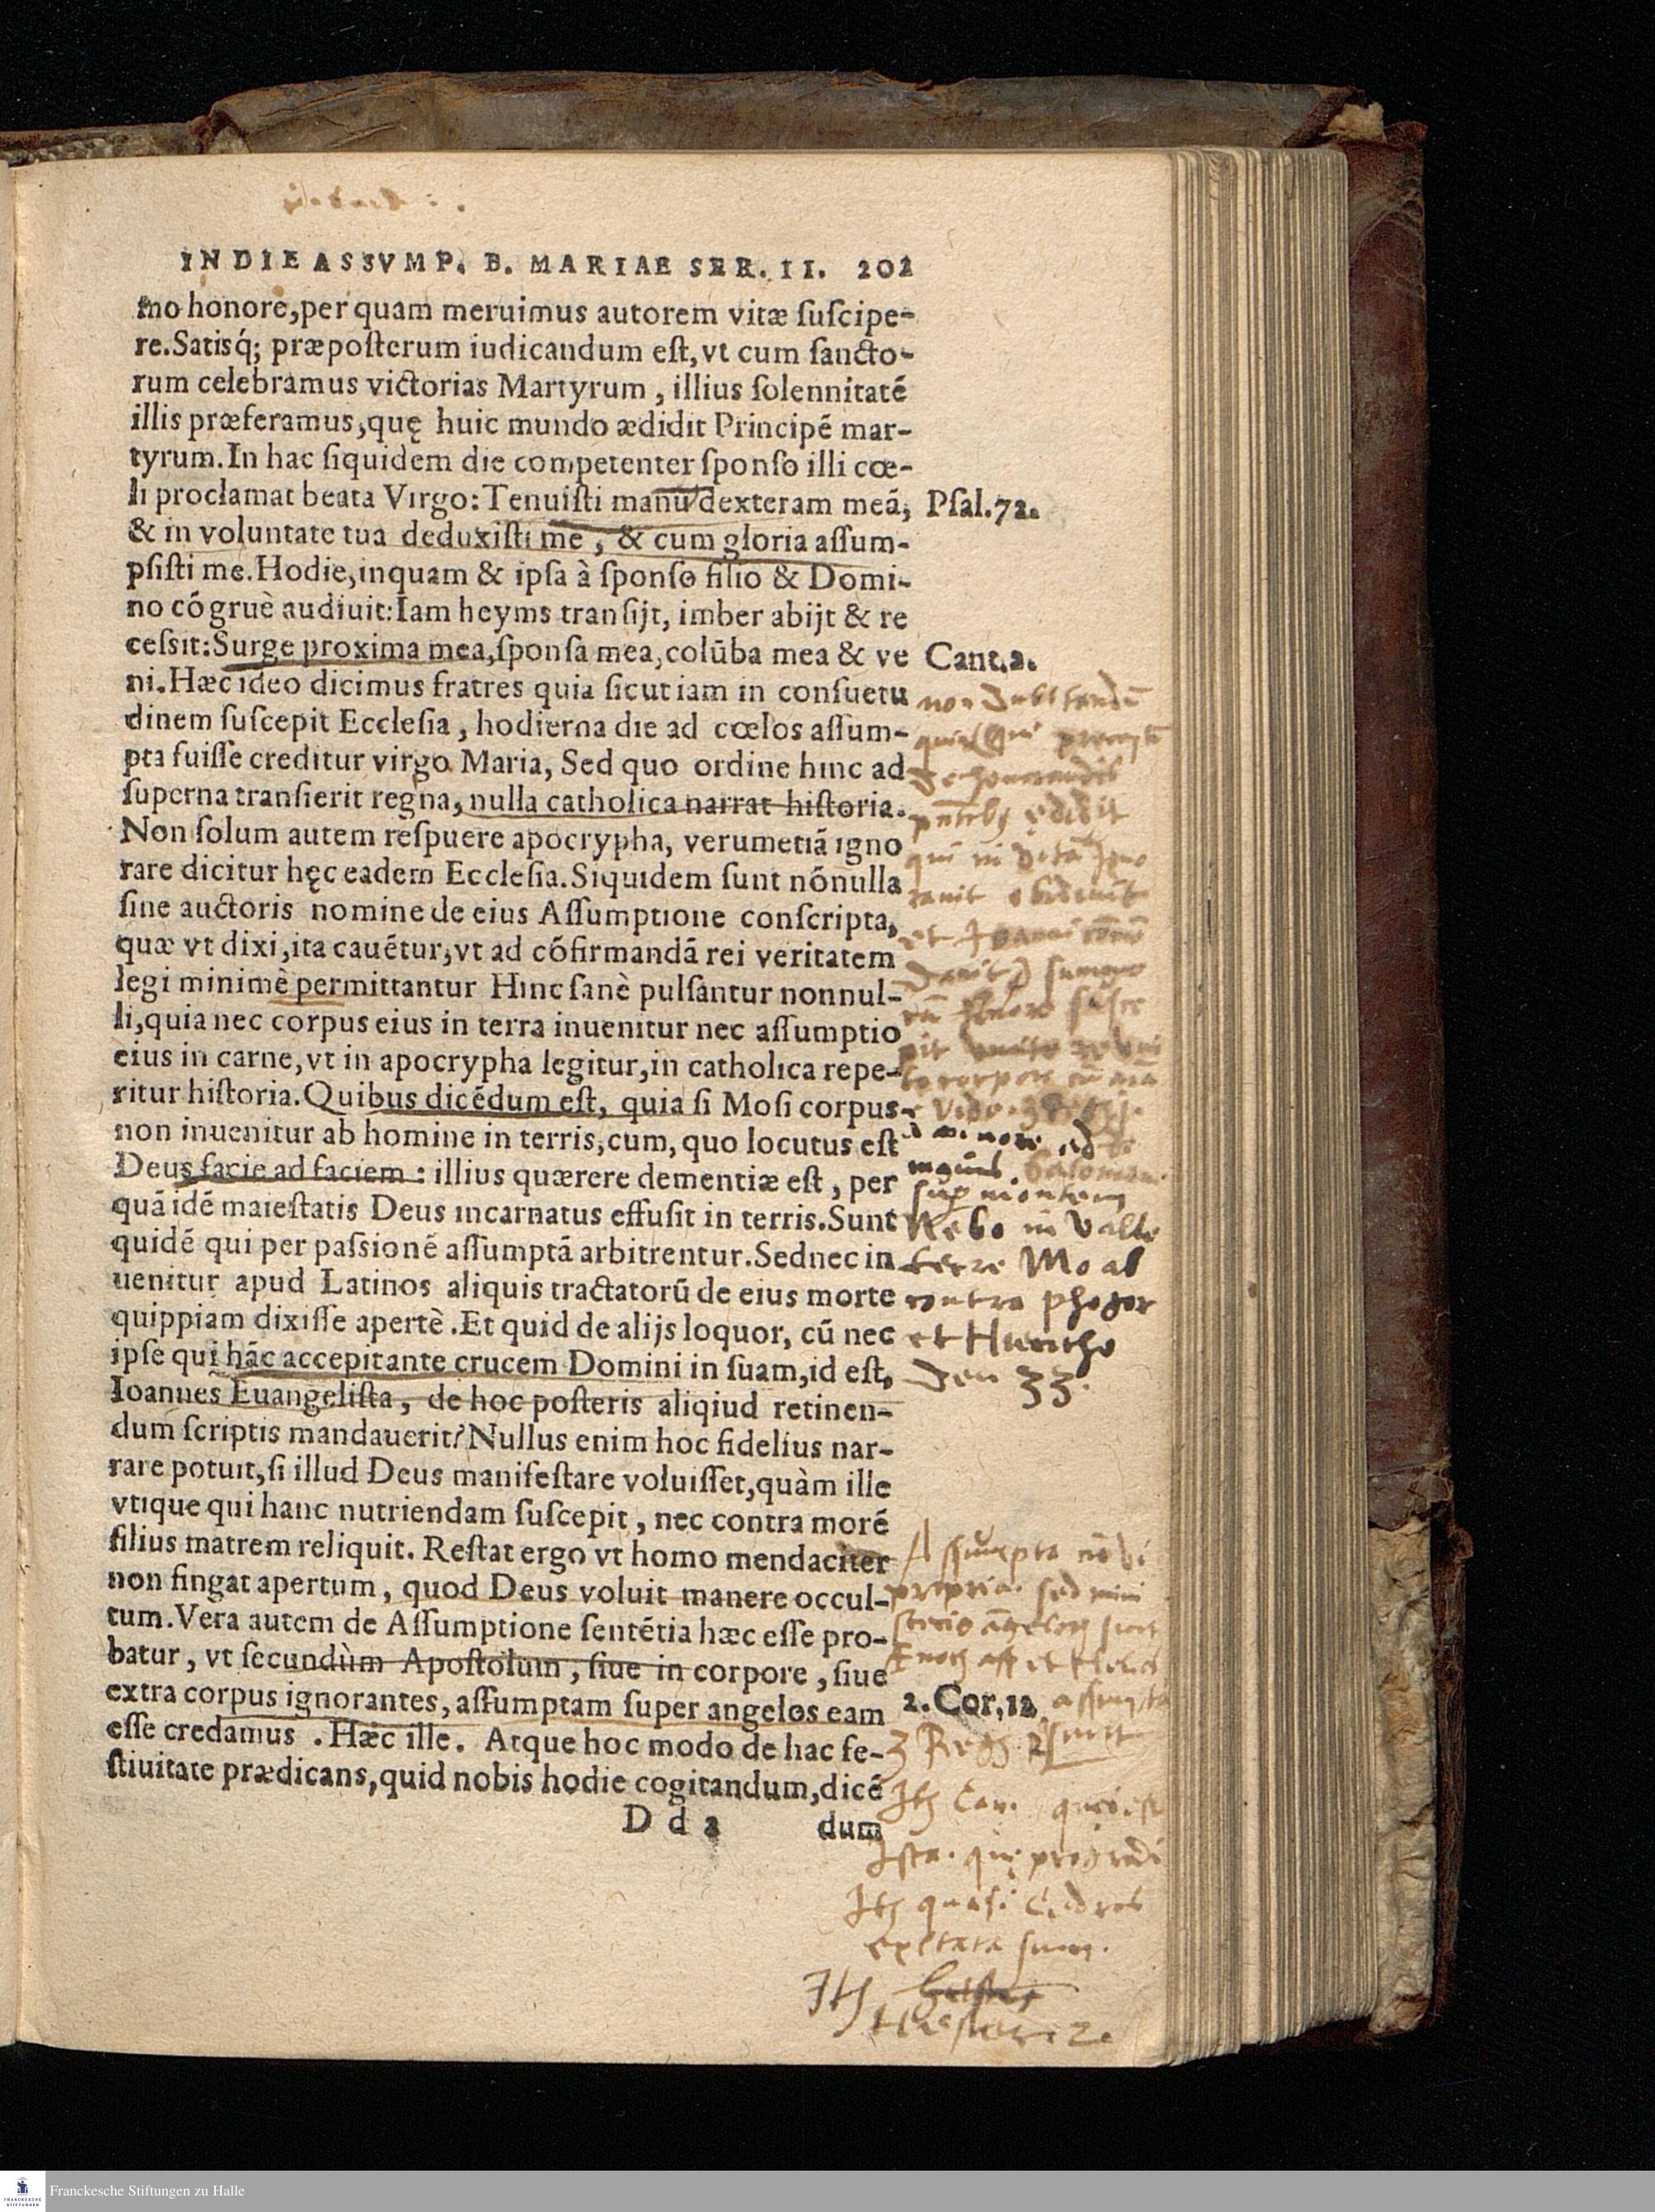 INDIE ASSVMP. B. MARIAE SER. II. 202
mo honore, per quam meruimus autorem vitæ ſuſcipe-
re. Satisq́; præpoſterum iudicandum eſt, vt cum ſancto-
rum celebramus victorias Martyrum, illius ſolennitatē
illis præferamus, quę huic mundo ædidit Principē mar-
tyrum. In hac ſiquidem die competenter ſponſo illi cœ-
li proclamat beata Virgo: Tenuiſti manū dexteram meā, Pſal. 72.
& in voluntate tua deduxiſti me, & cum gloria aſſum-
pſiſti me. Hodie, inquam & ipſa à ſponſo filio & Domi-
no cōgruè audiuit: Iam heyms tranſijt, imber abijt & re
ceſsit: Surge proxima mea, ſponſa mea, colūba mea & ve Cant. 2.
ni. Hæc ideo dicimus fratres quia ſicut iam in conſuetu
dinem ſuſcepit Eccleſia, hodierna die ad cœlos aſſum-
pta fuiſſe creditur virgo Maria, Sed quo ordine hinc ad
ſuperna tranſierit regna, nulla catholica narrat hiſtoria.
Non ſolum autem reſpuere apocrypha, verumetiā igno
rare dicitur hęc eadem Eccleſia. Siquidem ſunt nōnulla
ſine auctoris nomine de eius Aſſumptione conſcripta,
quæ vt dixi, ita cauētur, vt ad cōfirmandā rei veritatem
legi minimè permittantur Hinc ſanè pulſantur nonnul-
li, quia nec corpus eius in terra inuenitur nec aſſumptio
eius in carne, vt in apocrypha legitur, in catholica repe-
ritur hiſtoria. Quibus dicēdum eſt, quia ſi Moſi corpus
non inuenitur ab homine in terris, cum, quo locutus eſt
Deus facie ad faciem: illius quærere dementiæ eſt, per
quā idē maieſtatis Deus incarnatus effuſit in terris. Sunt
quidē qui per paſsionē aſſumptā arbitrentur. Sed nec in
uenitur apud Latinos aliquis tractatorū de eius morte
quippiam dixiſſe apertè. Et quid de alijs loquor, cū nec
ipſe qui hāc accepit ante crucem Domini in ſuam, id eſt,
Ioannes Euangeliſta, de hoc poſteris aliqiud retinen-
dum ſcriptis mandauerit? Nullus enim hoc fidelius nar-
rare potuit, ſi illud Deus manifeſtare voluiſſet, quàm ille
vtique qui hanc nutriendam ſuſcepit, nec contra morē
filius matrem reliquit. Reſtat ergo vt homo mendaciter
non fingat apertum, quod Deus voluit manere occul-
tum. Vera autem de Aſſumptione ſentētia hæc eſſe pro-
batur, vt ſecundùm Apoſtolum, ſiue in corpore, ſiue
extra corpus ignorantes, aſſumptam ſuper angelos eam 2. Cor. 12
eſſe credamus. Hæc ille. Atque hoc modo de hac fe-
ſtiuitate prædicans, quid nobis hodie cogitandum, dicē
D d 2 dum
non dubitandū
edidit
montem
Nebo in valle
terre Moab
contra phogor
et Hiericho
33.
Aſſumpta
propria. sed mini
quasi Cedrus
exaltata sum.
Franckesche Stiftungen zu Halle